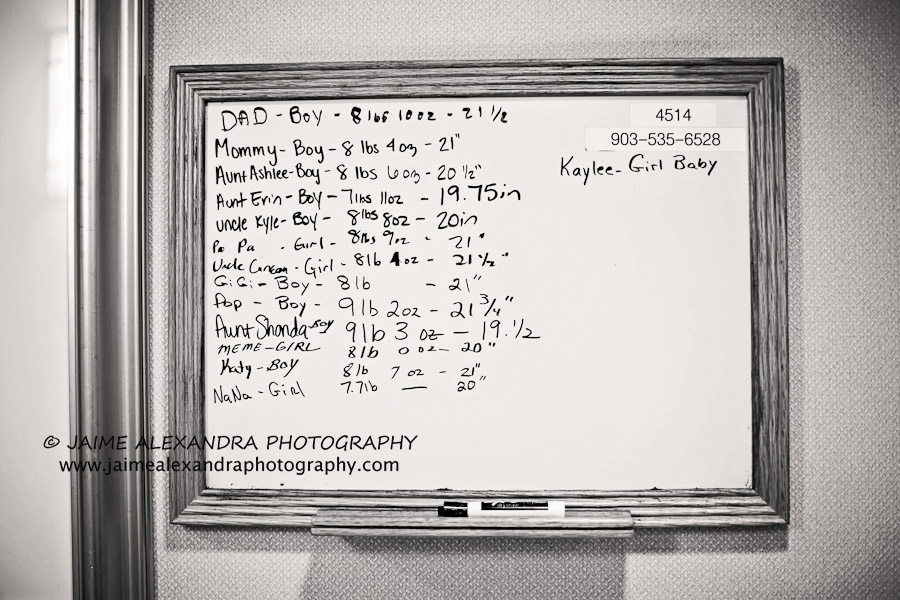 DAD - Boy - 8 lbs 10 oz - 21 1/2
Mommy - Boy - 8 lbs 4 oz - 21"
Aunt Ashlee - Boy - 8 lbs 6 oz - 20 1/2"
Aunt Erin - Boy - 7 lbs 11oz - 19.75in
uncle Kyle - Boy - 8lbs 8oz - 20in
Pa Pa - Girl - 8lbs 9oz - 21"
Uncle - Girl - 8lb 4oz - 21 1/2"
GiGi - Boy - 8lb - 21"
Pop - Boy - 9lb 2oz - 21 3/4"
Aunt Shonda - Boy 9lb 3 oz - 19.1/2
MEME - GIRL 8lb 0 oz - 20"
Katy - Boy 8lb 7 oz - 21"
NaNa - Girl 7.7lb — 20"
4514
903-535-6528
Kaylee - Girl Baby
© JAIME ALEXANDRA PHOTOGRAPHY
www.jaimealexandraphotography.com